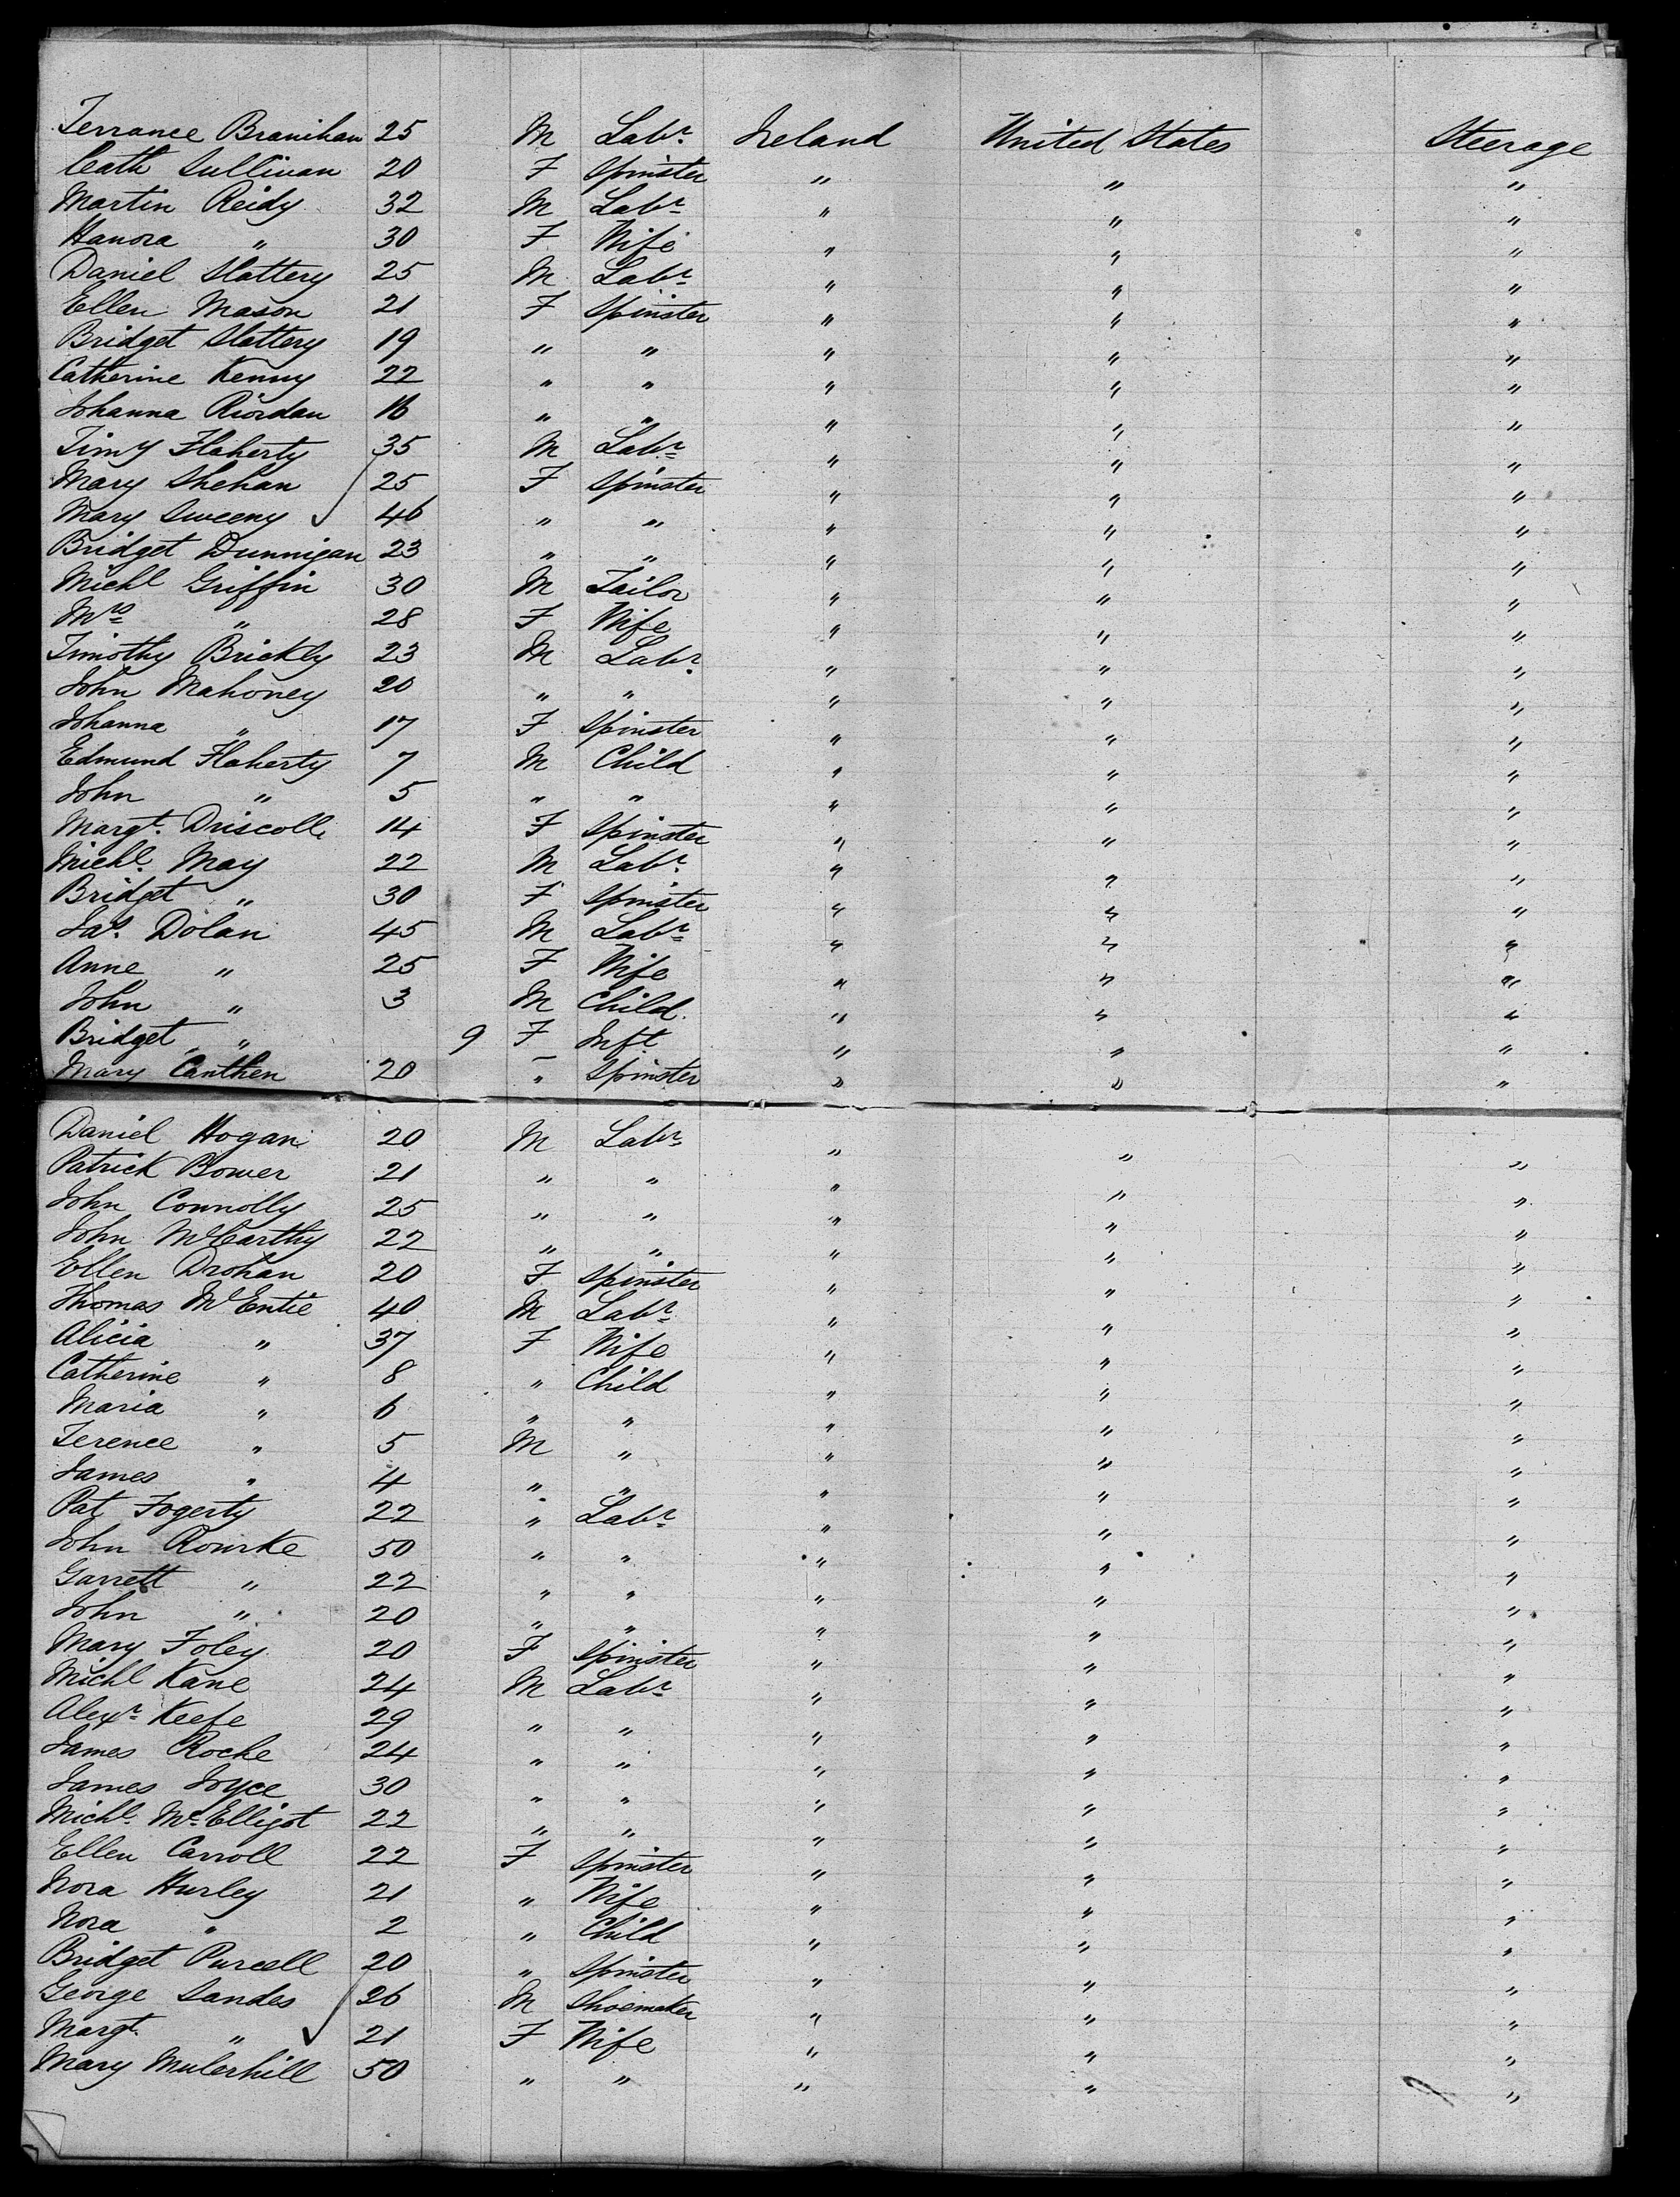 Terrance Branihan 25 M Labr. Ireland United States Steerage
Cath Sullivan 20 F Spinster " " "
Martin Reidy 32 M Labr " " "
Hanora " 30 F Wife " " "
Daniel Slattery 25 M Labr " " "
Ellen Mason 21 F Spinster " " "
Bridget Slattery 19 " " " " "
Catherine Kenny 22 " " " " "
Johanna Riordan 16 " " " " "
Timy Flaherty 35 M Labr " " "
Mary Shehan 25 F Spinster " " "
Mary Sweeny 46 " " " " "
Bridget Dunnigan 23 " " " " "
Michl Griffin 30 M Tailor " " "
Mrs " 28 F Wife " " "
Timothy Brickly 23 M Labr. " " "
John Mahoney 20 " " " " "
Johanna " 17 F Spinster " " "
Edmund Flaherty 7 M Child " " "
John " 5 " " " " "
Margt. Driscoll 14 F Spinster " " "
Michl. May 22 M Labr. " " "
Bridget " 30 F Spinster " " "
Jas. Dolan 45 M Labr " " "
Anne " 25 F Wife " " "
John " 3 M Child. " " "
Bridget " 9 F Inft " " "
Mary Canthen 20 " Spinster " " "
Daniel Hogan 20 M Labr " " "
Patrick Bower 21 " " " " "
John Connolly 25 " " " " "
John McCarthy 22 " " " " "
Ellen Drohan 20 F Spinster " " "
Thomas McEntie 40 M Labr " " "
Alicia " 37 F Wife " " "
Catherine " 8 " Child " " "
Maria " 6 " " " " "
Terence " 5 M " " " "
James " 4 " " " " "
Pat Fogerty 22 " Labr " " "
John Rourke 50 " " " " "
Garrett " 22 " " " " "
John " 20 " " " " "
Mary Foley 20 F Spinster " " "
Michl Kane 24 M Labr " " "
Alexr Keefe 29 " " " " "
James Roche 24 " " " " "
James Joyce 30 " " " " "
Michl. McElligot 22 " " " " "
Ellen Carroll 22 F Spinster " " "
Nora Hurley 21 " Wife " " "
Nora " 2 " Child " " "
Bridget Purcell 20 " Spinster " " "
George Sandes 26 M Shoemaker " " "
Margt. " 21 F Wife " " "
Mary Mulerhill 50 " " " " "